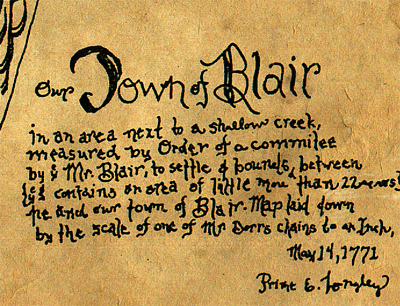 Our Town of Blair
in an area next to a shallow creek,
measured by Order of a commitee
by Mr. Blair, to settle bounds between
contains an area of little mou than 22
he and our town of Blair. Map laid down
by the scale of one of Mr Dorrs chains to an Inch,
May 14, 1771